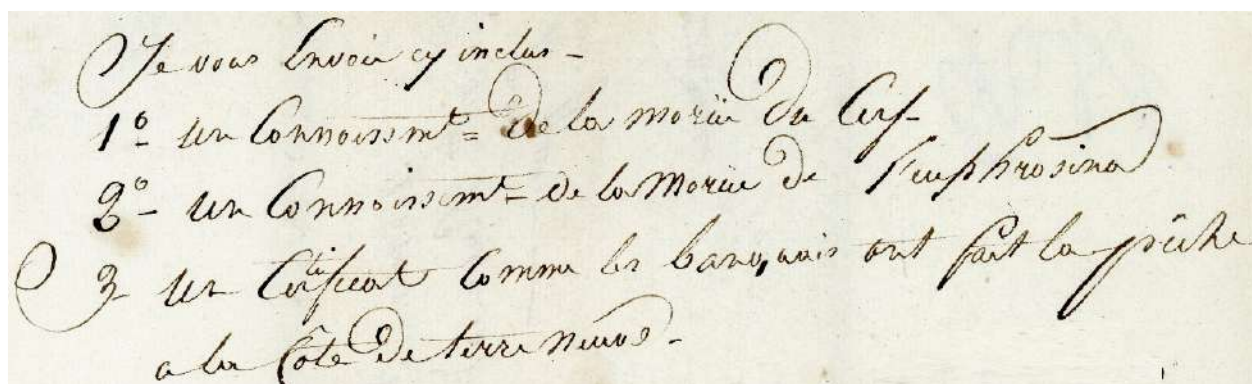 Je vous Envoie cy inclus -
1º un Connoissmt = de la moruë du Cerf -
2º un Connoissemt - de la Moruë de l'euphrosina
3 un Certificat Comme les banquais ont fait la pêche
a la Côte de terre neuve -